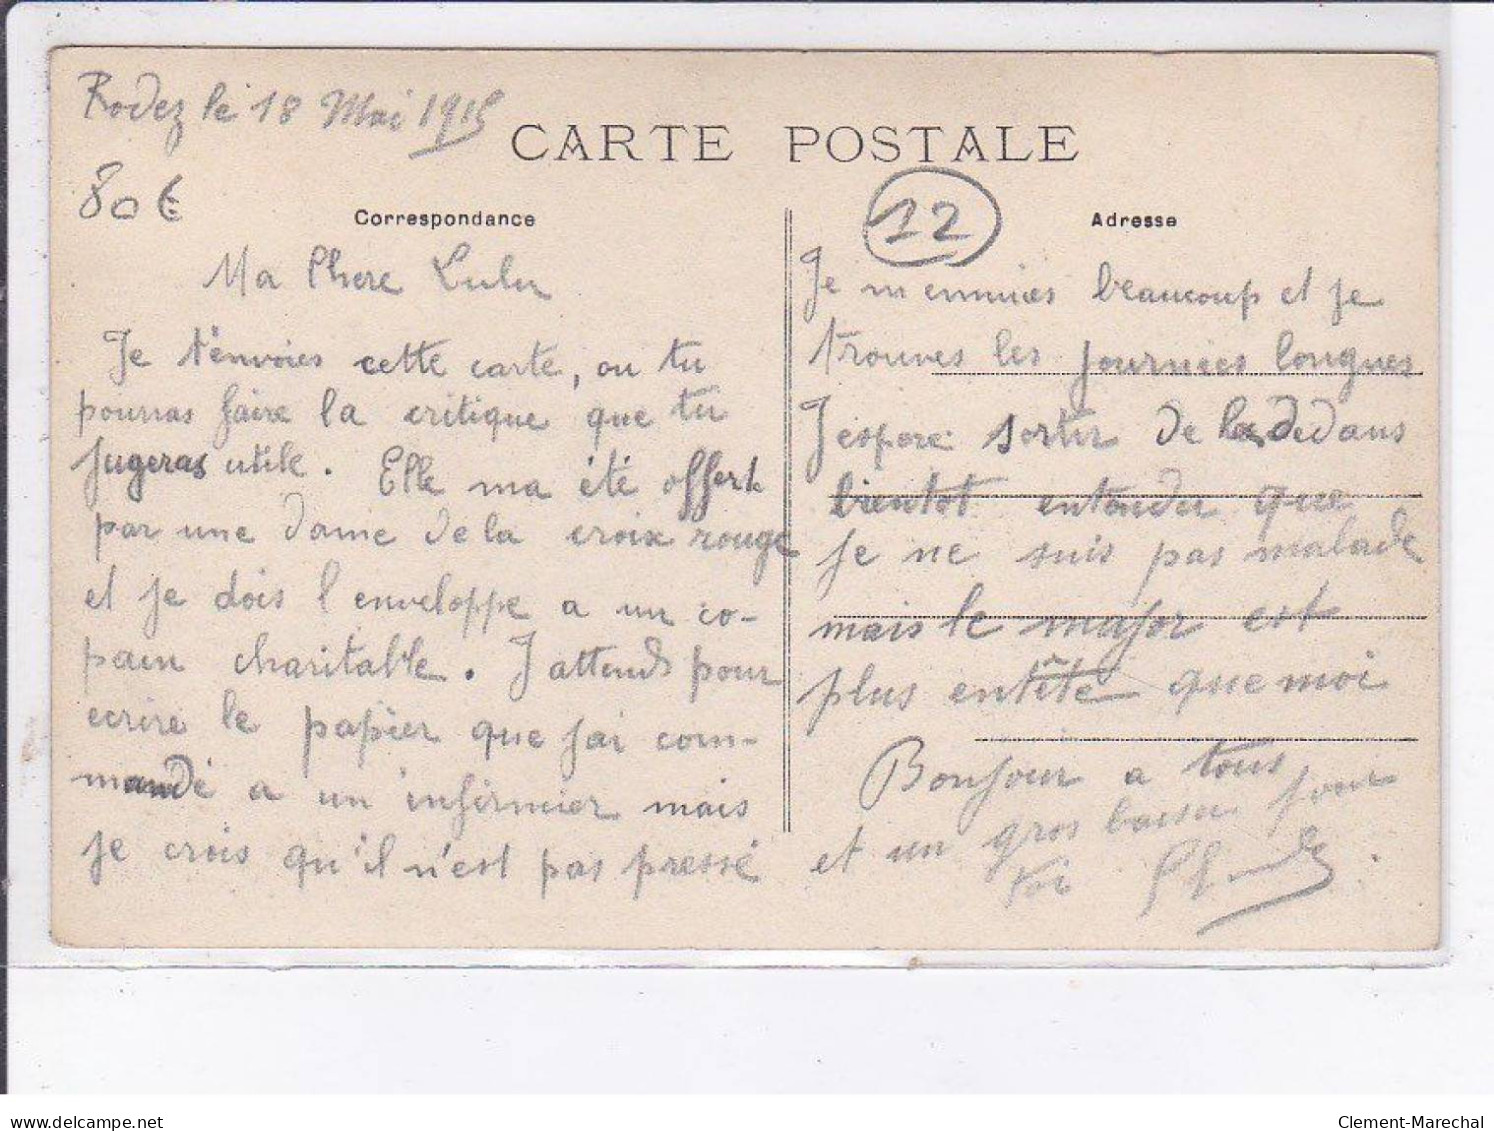 Rodez le 18 Mai 1915
CARTE POSTALE
80€
12
Correspondance
Adresse
Ma Chere Lulu
Je t'envoies cette carte, ou tu
pourras faire la critique que tu
Jugeras utile. Elle ma été offerte
par une dame de la croix rouge
et je dois l enveloppe a un co-
pain charitable. J attends pour
ecrire le papier que jai com-
mandé a un infirmier mais
je crois qu'il n'est pas pressé
Je m ennuies beaucoup et je
trouves les journées longues
J espere sortir de la dedans
bientot entendu que
je ne suis pas malade
mais le major est
plus entêté que moi
Bonjour a tous
et un gros baiser pour
toi
delcampe.net
Clement-Marechal